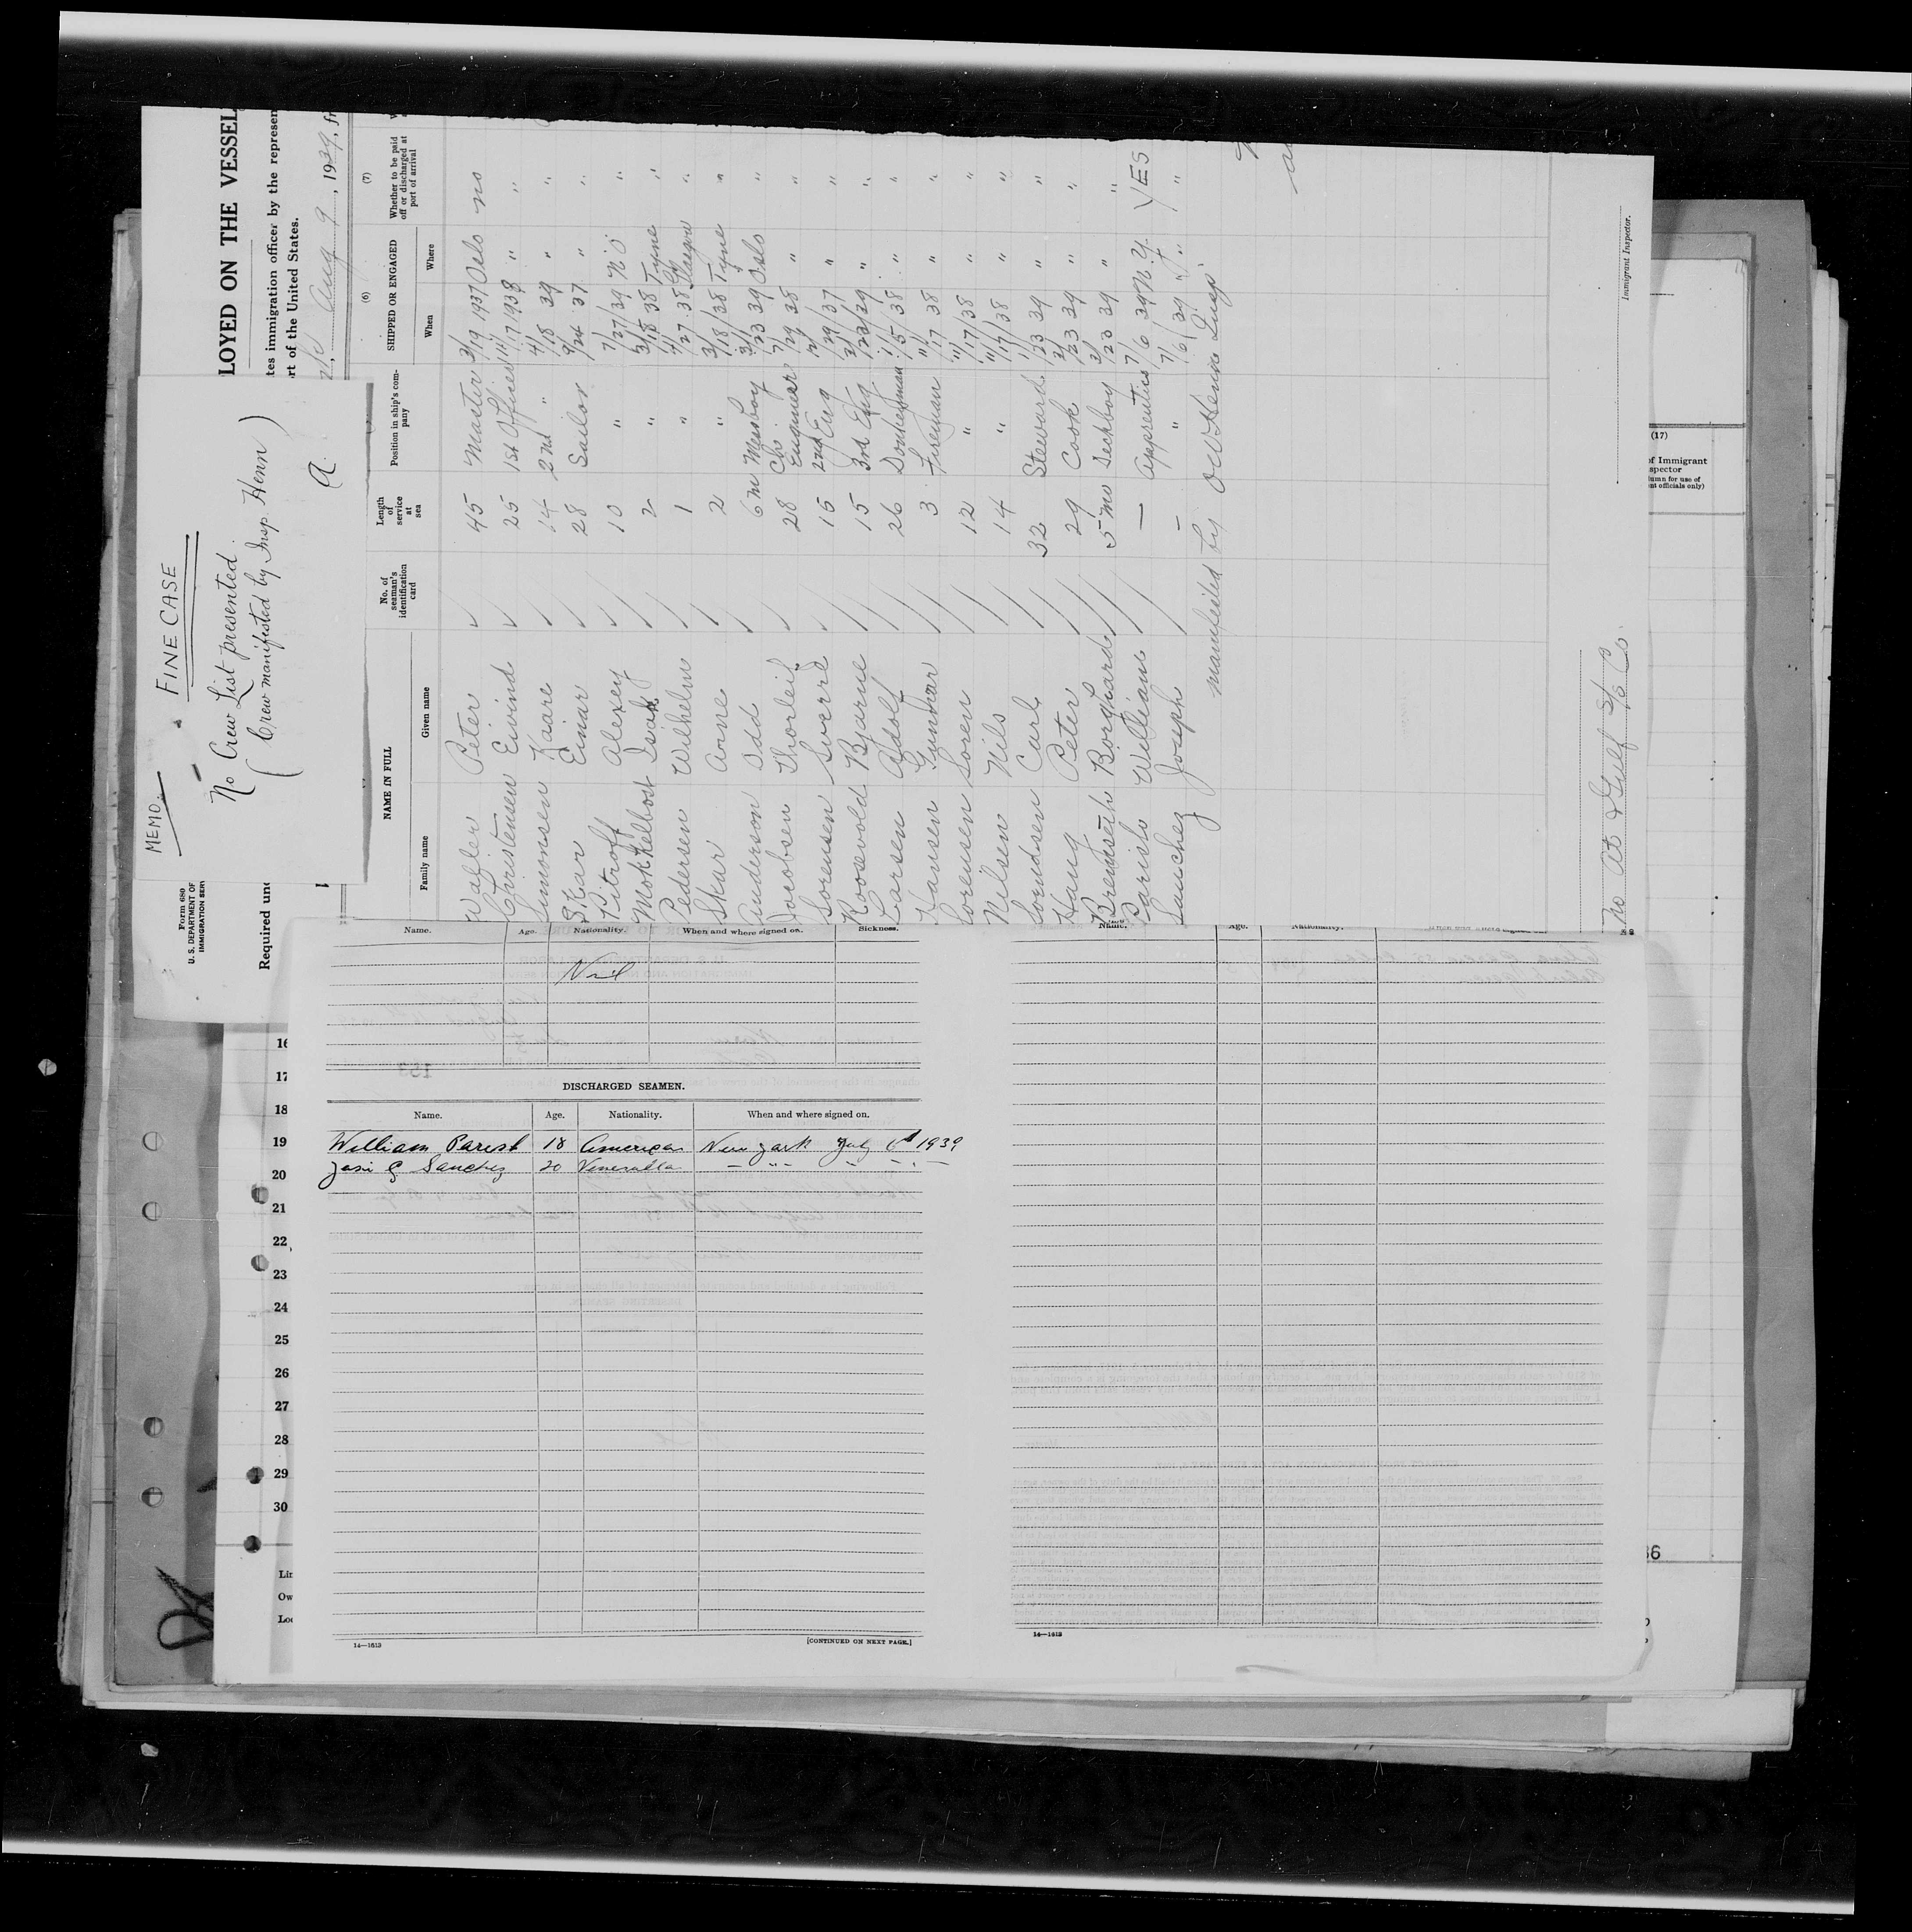 MEMO.
FINE CASE
No Crew List presented.
(Crew manifested by Insp. Henn)
Form 680
U. S. DEPARTMENT OF
IMMIGRATION SERV
LOYED ON THE VESSEL
Required und
tes immigration officer by the represen
rt of the United States.
Aug 9, 1939, fr
NAME IN FULL
Family name
Given name
No. of seaman's identification card
Length of service at sea
Position in ship's company
(6)
SHIPPED OR ENGAGED
When
Where
(7)
Whether to be paid off or discharged at port of arrival
Peter 45 Master 3/19 1937 Oslo no
Christensen Eivind 25 1st Officer 11/17 1938 " "
Simonsen Kaare 14 2nd " 4/18 39 " "
Skar Einar 28 Sailor 9/24 37 " "
Pitroff Alexey 10 " 7/27/39 N O "
Mokkelbost Isak 2 " 3/18 38 Tyne "
Pedersen Wilhelm 1 " 4/27 38 "
Skar Arne 2 " 3/18/38 Tyne "
Anderson Odd 6 m Messboy 3/23 39 Oslo "
Jacobsen Thorleif 28 Ch. Engineer 7/29 38 " "
Sorensen Sverre 15 2nd Eng 2/29/37 " "
Roosevold Bjarne 15 3rd Eng 2/23/39 " "
Larsen Adolf 26 Donkeyman 1/5/38 " "
Hansen Gunnar 3 Fireman 11/17 38 " "
Sorensen Soren 12 " 11/17/38 " "
Nilsen Nils 14 " 11/17/38 " "
Carl 32 Steward 1/23 39 " "
Haug Peter 29 Cook 2/23 39 " "
Borghard 5 mo Deckboy 2/23 39 " "
Parish William — Apprentice 7/6 39 N.Y. YES
Sanchez Joseph — " 7/6/39 " "
manifested by Henn Insp
No At & Gulf S/S Co.
Immigrant Inspector.
(17)
of Immigrant
spector
lumn for use of
nt officials only)
Name. Age. Nationality. When and where signed on. Sickness.
Nil
DISCHARGED SEAMEN.
Name. Age. Nationality. When and where signed on.
William Parish 18 American New York July 6th 1939
20 — " " " " —
14—1613
[CONTINUED ON NEXT PAGE.]
Name. Age. Nationality.
14—1613
16
17
18
19
20
21
22
23
24
25
26
27
28
29
30
Lin
Ow
Loc
36